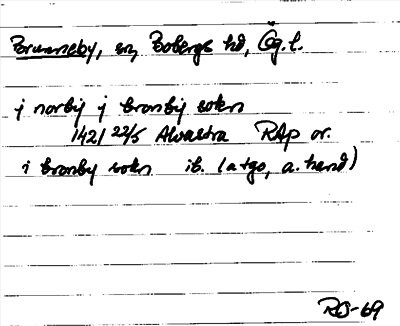 Brunneby, sn, Bobergs hd, Ög. l.
j norby j bronby sokn
1421 22/5 Alvastra RAp or.
i bronby sokn ib. (atgo, a. hand)
RO-69